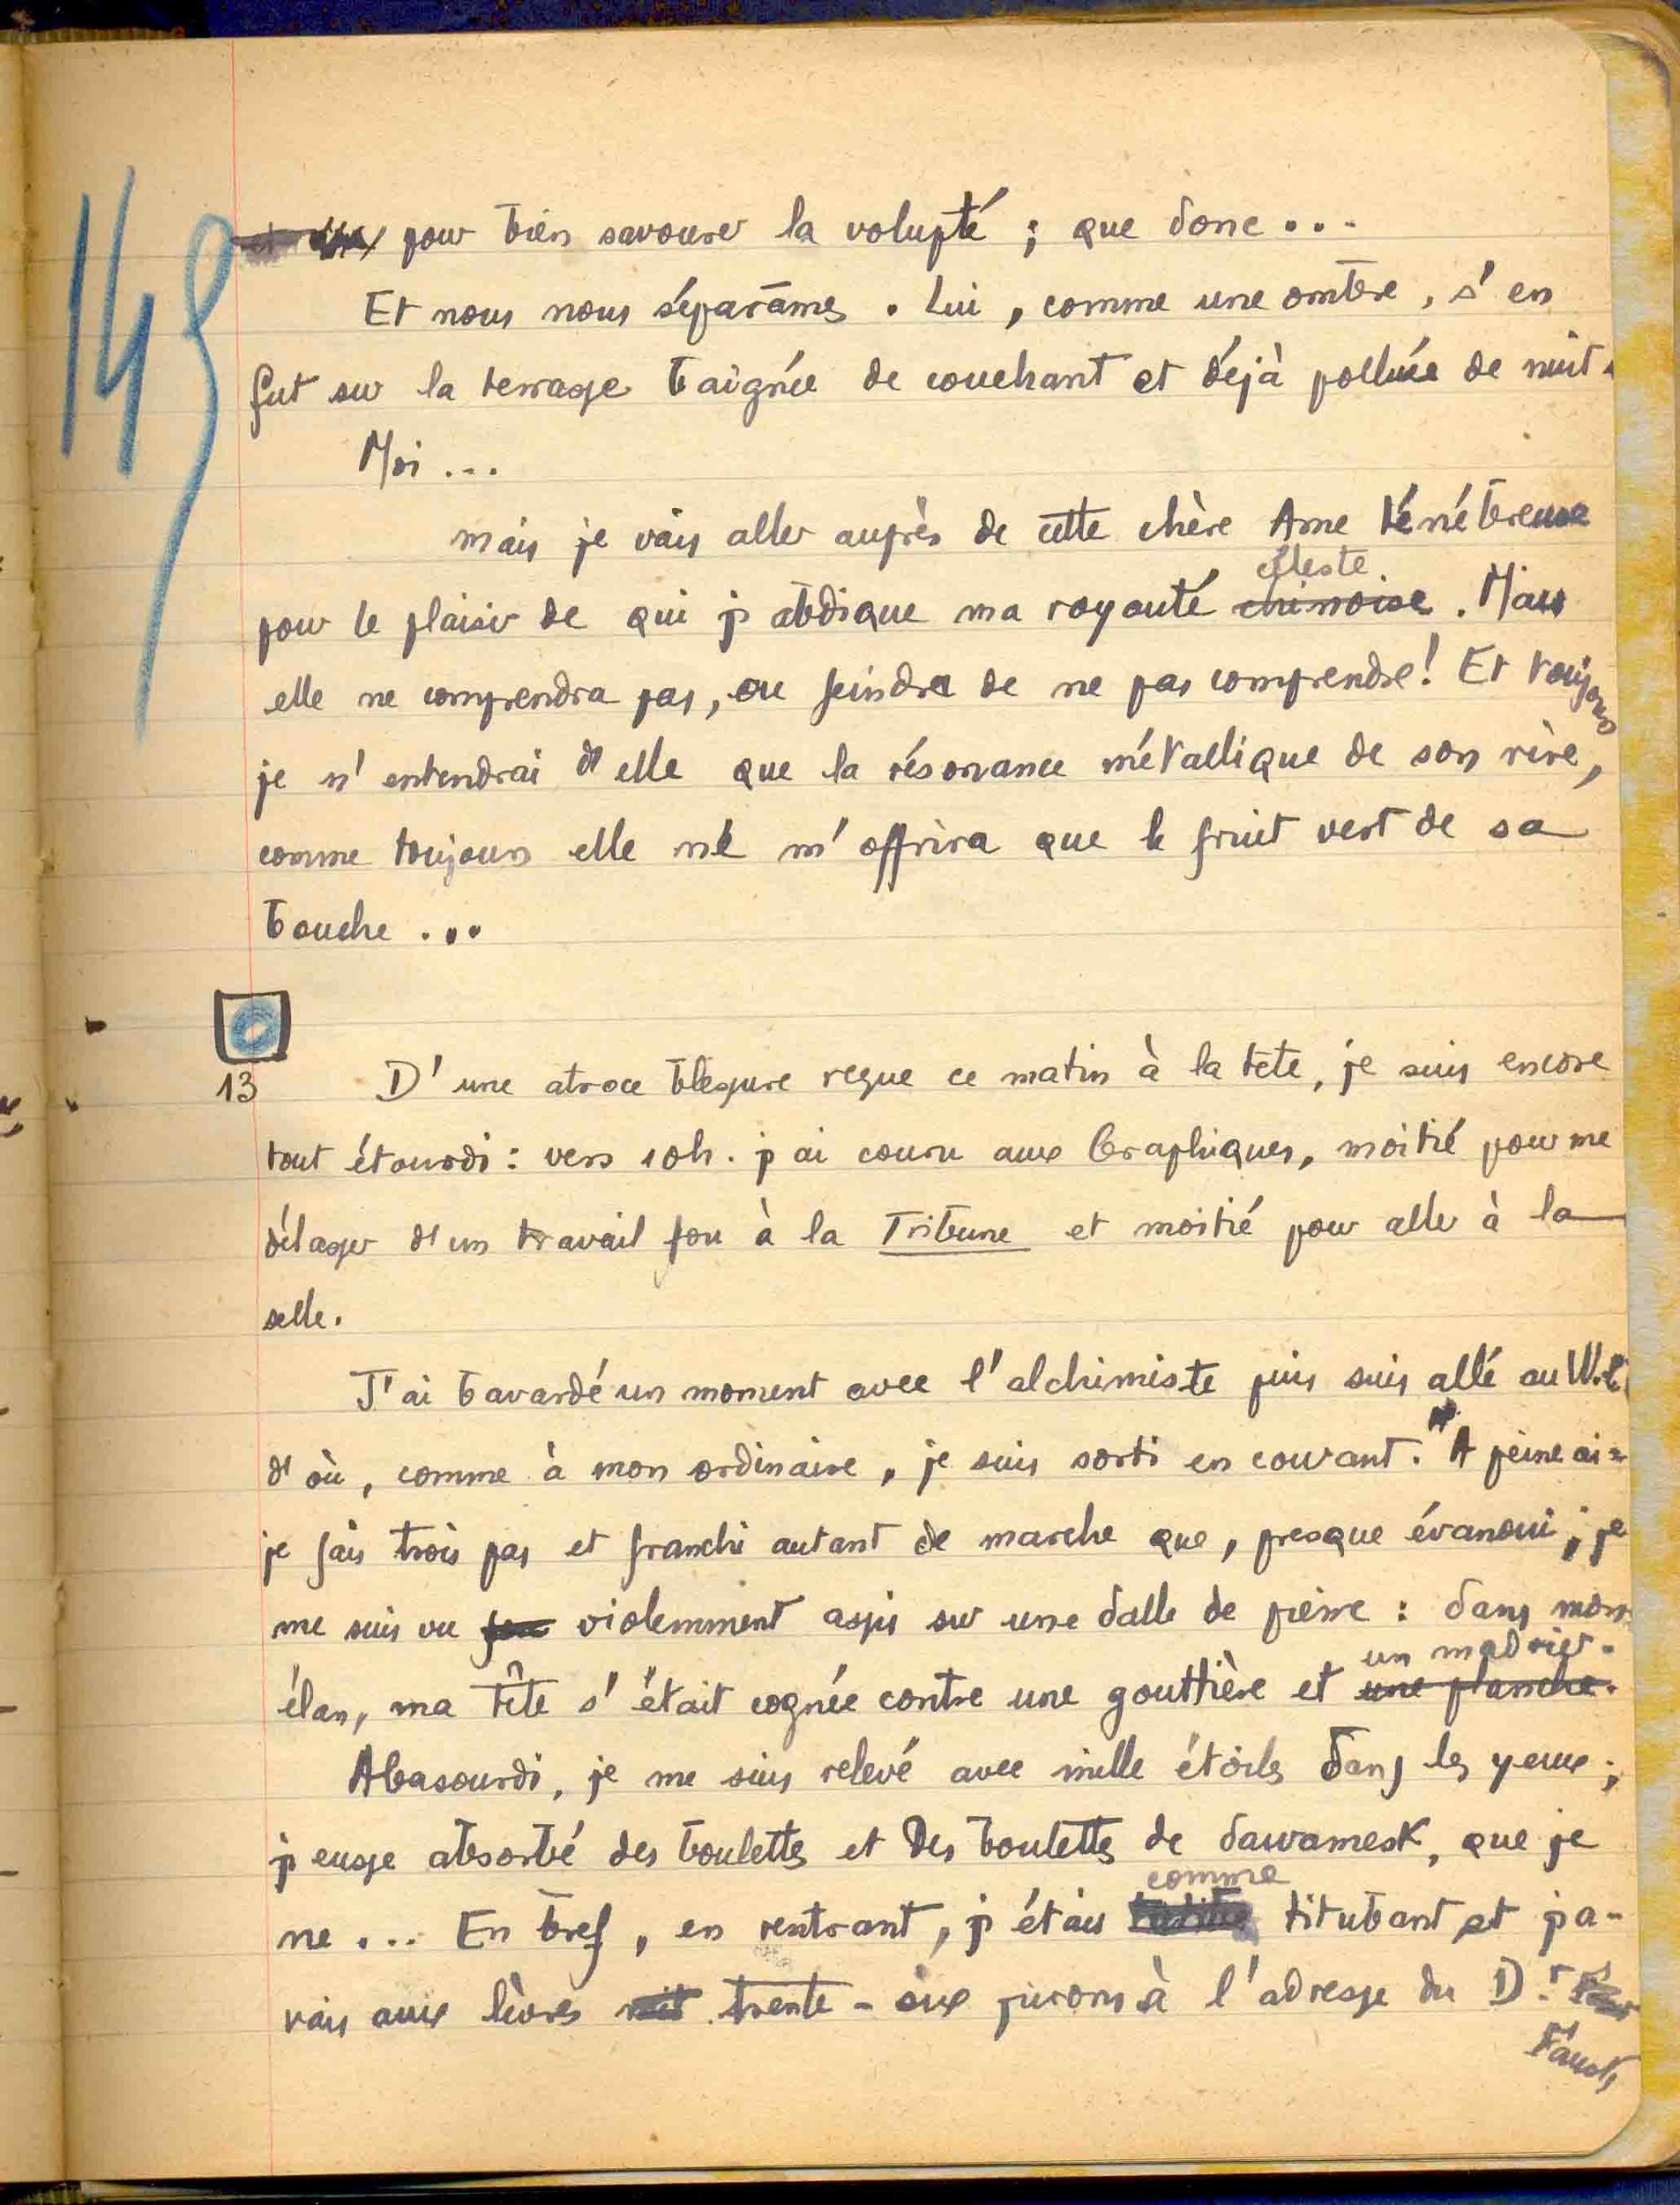 149
pour bien savourer la volupté ; que donc...
Et nous nous séparâmes. Lui, comme une ombre, s'en
fut sur la terrasse baignée de couchant et déjà polluée de nuit.
Moi...
mais je vais aller auprès de cette chère Ame ténébreuse
céleste
pour le plaisir de qui j'abdique ma royauté chinoise. Mais
elle ne comprendra pas, ou feindra de ne pas comprendre! Et toujours
je n'entendrai d'elle que la résonance métallique de son rire,
comme toujours elle ne m'offrira que le fruit vert de sa
bouche...
13 D'une atroce blessure reçue ce matin à la tête, je suis encore
tout étourdi : vers 10h. j'ai couru aux Graphiques, moitié pour me
délasser d'un travail fou à la Tribune et moitié pour aller à la
selle.
J'ai bavardé un moment avec l'alchimiste puis suis allé au W.C.
d'où, comme à mon ordinaire, je suis sorti en courant. A peine ai-
je fais trois pas et franchi autant de marche que, presque évanoui, je
me suis vu violemment assis sur une dalle de pierre : dans mon
un madrier.
élan, ma tête s'était cognée contre une gouttière et une planche.
Abasourdi, je me suis relevé avec mille étoiles dans les yeux ;
j'eusse absorbé des boulettes et des boulettes de dawamesk, que je
comme
ne... En bref, en rentrant, j'étais titubant et j'a-
vais aux lèvres trente-six jurons à l'adresse du Dr
Faust